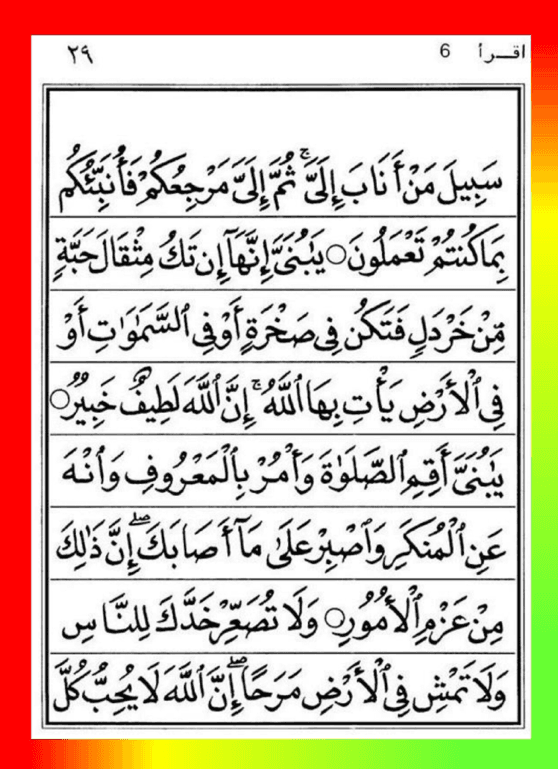 اقـــرأ 6 ٢٩
سَبِيلَ مَنْ أَنَابَ إِلَىَّ ۚ ثُمَّ إِلَىَّ مَرْجِعُكُمْ فَأُنَبِّئُكُم
بِمَا كُنتُمْ تَعْمَلُونَ ○ يَٰبُنَىَّ إِنَّهَآ إِن تَكُ مِثْقَالَ حَبَّةٍ
مِّنْ خَرْدَلٍ فَتَكُن فِى صَخْرَةٍ أَوْ فِى ٱلسَّمَٰوَٰتِ أَوْ
فِى ٱلْأَرْضِ يَأْتِ بِهَا ٱللَّهُ ۚ إِنَّ ٱللَّهَ لَطِيفٌ خَبِيرٌ ○
يَٰبُنَىَّ أَقِمِ ٱلصَّلَوٰةَ وَأْمُرْ بِٱلْمَعْرُوفِ وَٱنْهَ
عَنِ ٱلْمُنكَرِ وَٱصْبِرْ عَلَىٰ مَآ أَصَابَكَ ۖ إِنَّ ذَٰلِكَ
مِنْ عَزْمِ ٱلْأُمُورِ ○ وَلَا تُصَعِّرْ خَدَّكَ لِلنَّاسِ
وَلَا تَمْشِ فِى ٱلْأَرْضِ مَرَحًا ۖ إِنَّ ٱللَّهَ لَا يُحِبُّ كُلَّ